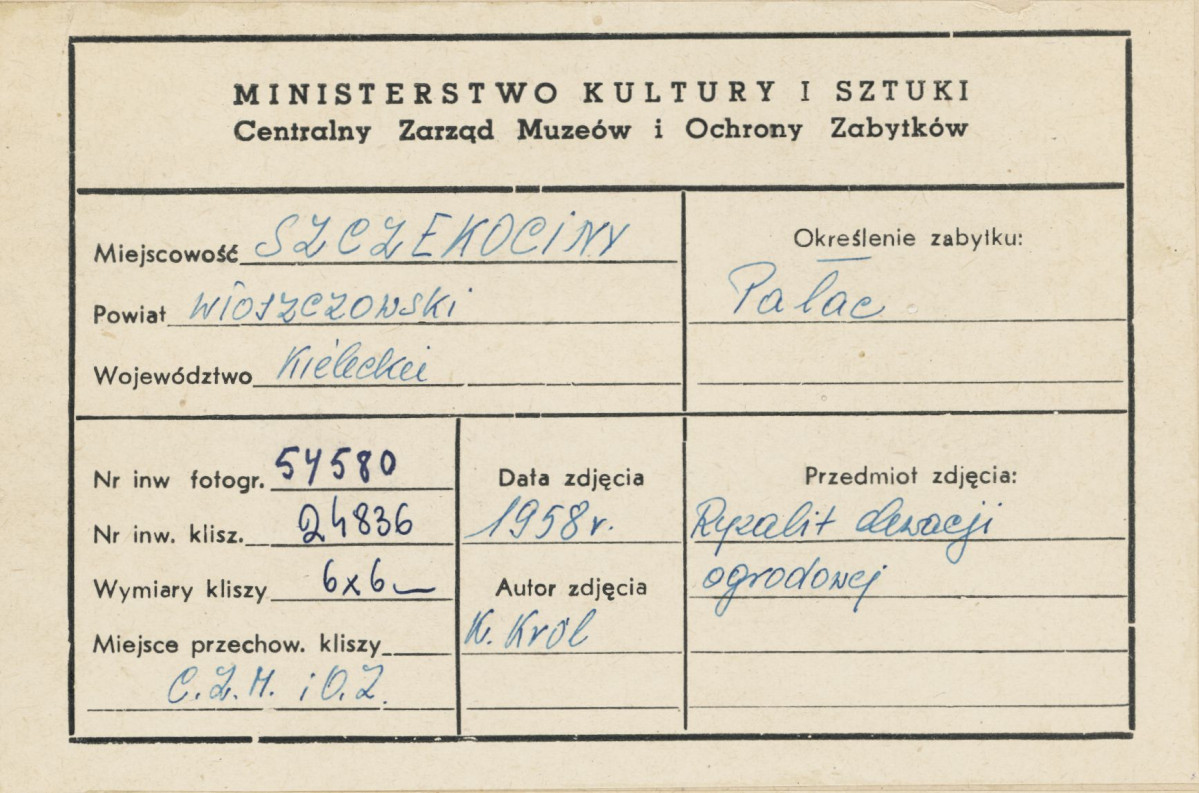 MINISTERSTWO KULTURY I SZTUKI
Centralny Zarząd Muzeów i Ochrony Zabytków
Miejscowość SZCZEKOCINY
Powiat WŁOSZCZOWSKI
Województwo Kieleckie
Określenie zabytku:
Pałac
Nr inw fotogr. 54580
Nr inw. klisz. 24836
Wymiary kliszy 6x6
Miejsce przechow. kliszy
C.Z.M. i O.Z.
Data zdjęcia
1958 r.
Autor zdjęcia
K. Król
Przedmiot zdjęcia:
Ryzalit elewacji
ogrodowej